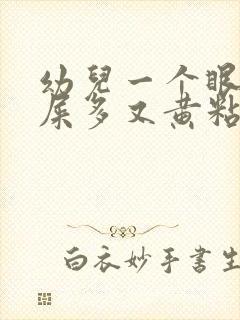 幼兒一个眼
屎多又黄粘
白衣妙手書生